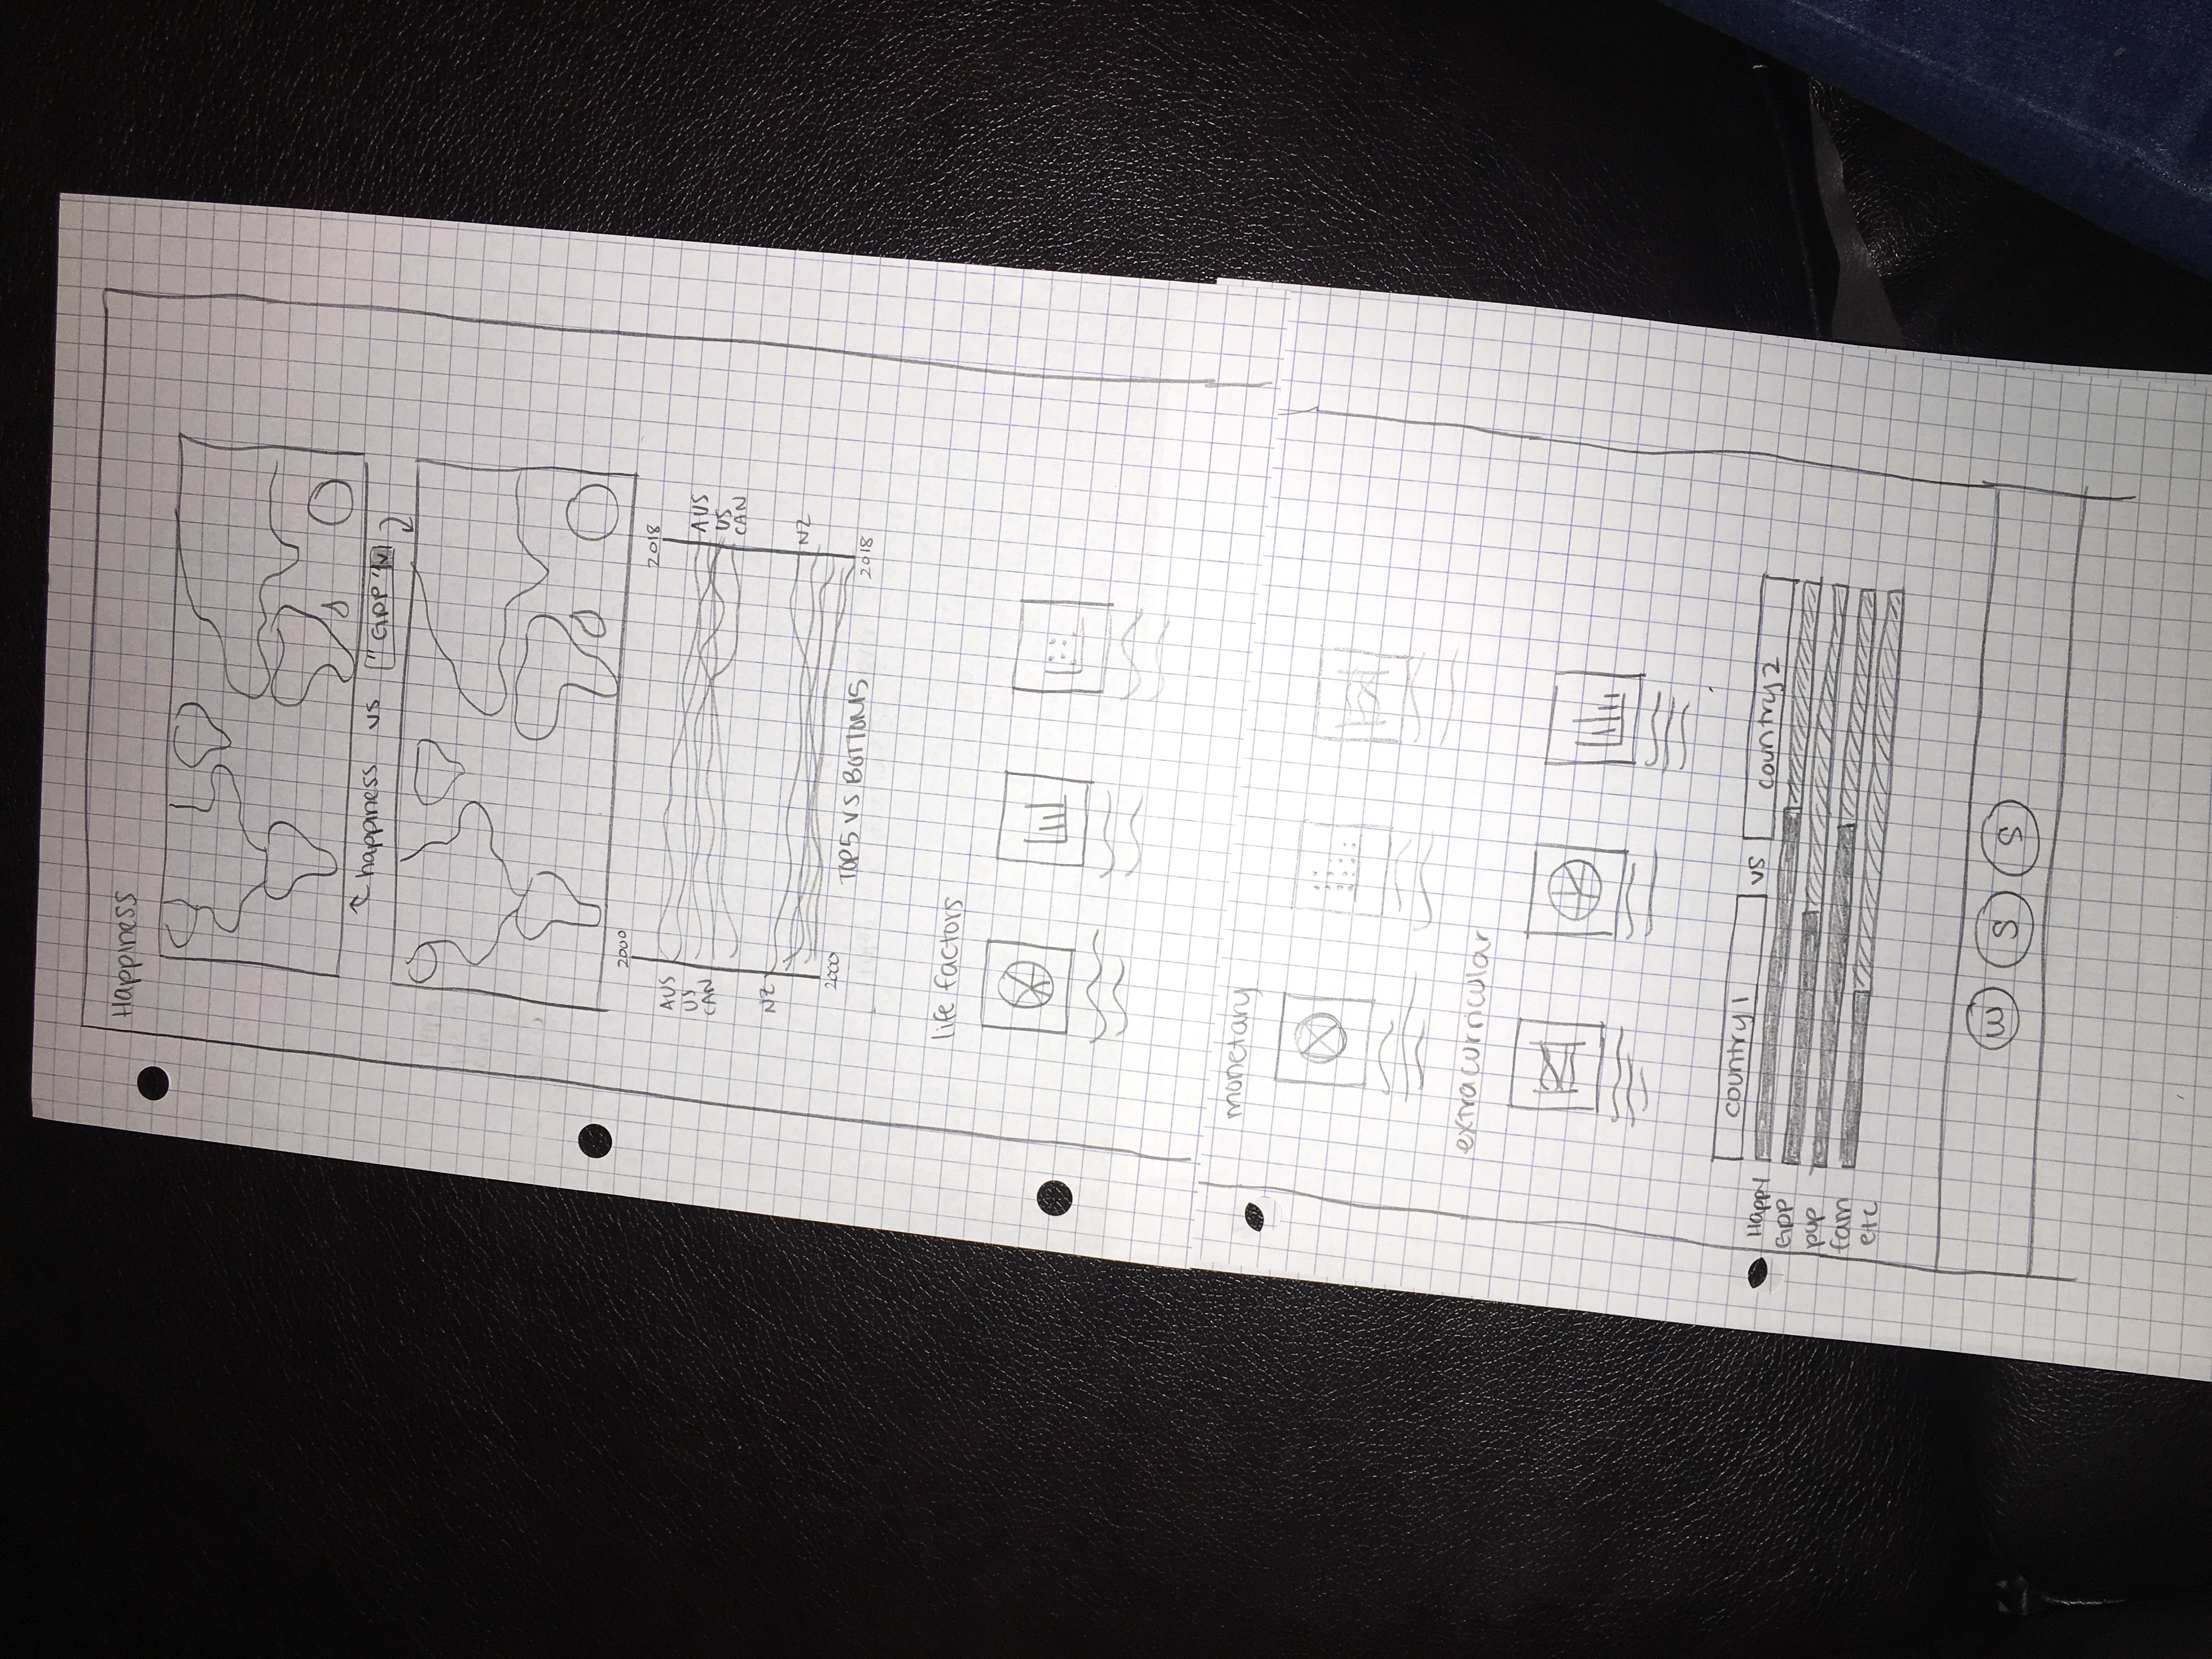 Happiness
happiness vs "GDP"
2000
2018
AUS
AUS
US
US
CAN
CAN
NZ
NZ
2000
TOP5 VS BOTTOM5
2018
life factors
monetary
extracurricular
country 1 vs country 2
Happy
GDP
pup
fam
etc
W S S